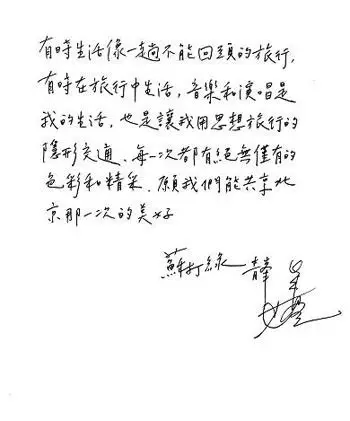 有時生活像一趟不能回頭的旅行,
有時在旅行中生活,音樂和演唱是
我的生活,也是讓我用思想旅行的
隱形交通、每一次都有絕無僅有的
色彩和精采、願我們能共享北
京那一次的美好
蘇打綠 青峯